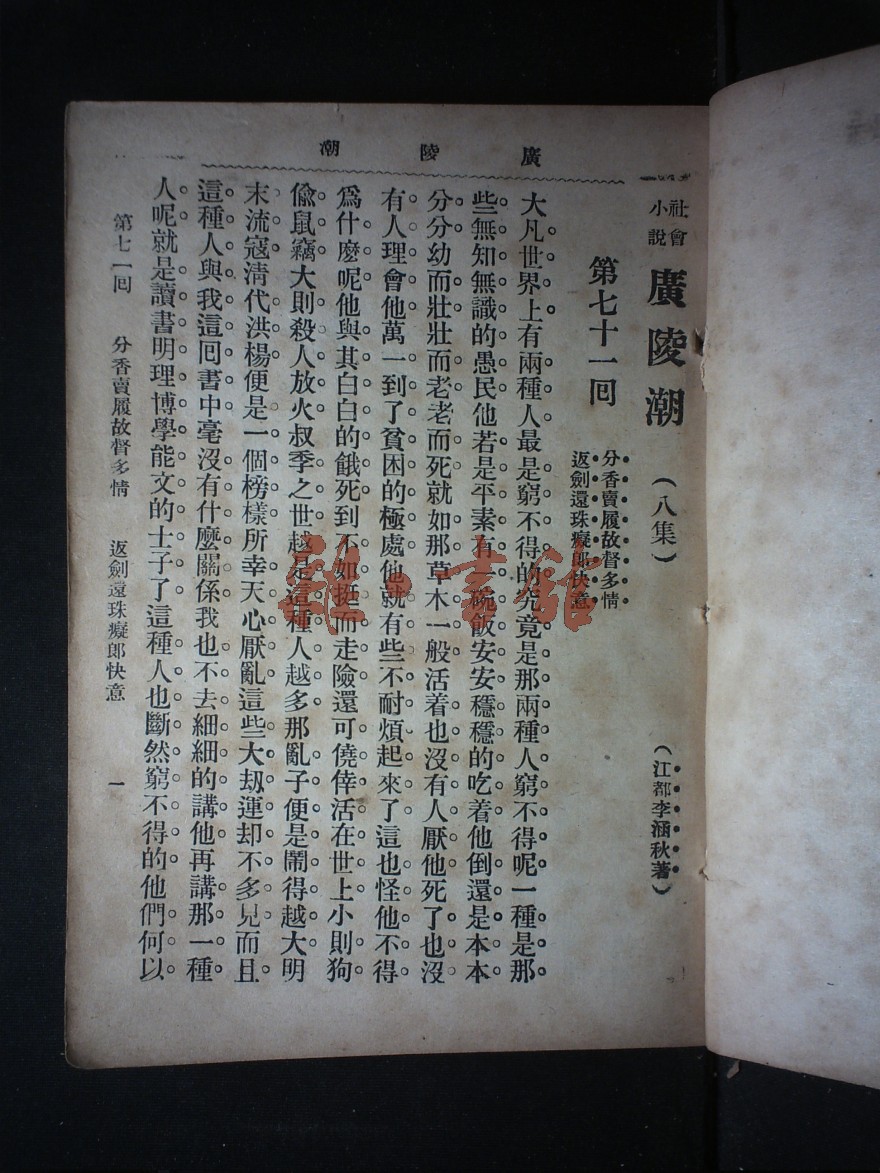 廣陵潮
社會
小說
廣陵潮
（八集）
（江都李涵秋著）
第七十一回
分香賣履故督多情
返劍還珠癡郎快意
大凡世界上有兩種人最是窮不得的究竟是那兩種人窮不得呢一種是那
些無知無識的愚民他若是平素有一碗飯安安穩穩的吃着他倒還是本本
分分幼而壯壯而老老而死就如那草木一般活着也沒有人厭他死了也沒
有人理會他萬一到了貧困的極處他就有些不耐煩起來了這也怪他不得
爲什麼呢他與其白白的餓死到不如挺而走險還可僥倖活在世上小則狗
偸鼠竊大則殺人放火叔季之世越是這種人越多那亂子便是鬧得越大明
末流寇清代洪楊便是一個榜樣所幸天心厭亂這些大刼運却不多見而且
這種人與我這回書中毫沒有什麼關係我也不去細細的講他再講那一種
人呢就是讀書明理博學能文的士子了這種人也斷然窮不得的他們何以
第七一回 分香賣履故督多情 返劍還珠癡郎快意 一
雜書館